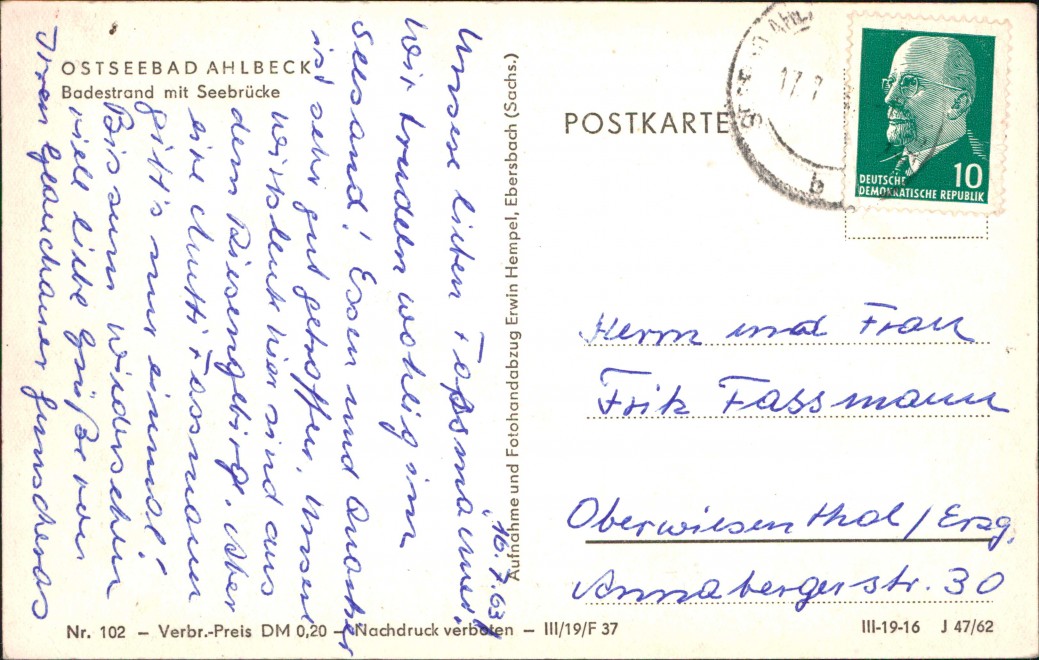 OSTSEEBAD AHLBECK
Badestrand mit Seebrücke
Unsere lieben Fassmänner!
Wir trudeln wohlig im
Seesand! Essen und Quartier
ist sehr gut getroffen. Unsere
Wirtsleute hier sind aus
dem Riesengebirge. Aber
eine Mutti Fassmann
gibt's nur einmal!
Bis zum Wiedersehen
viele liebe Grüße von
Ihren Glauchauer
16.7.63
Aufnahme und Fotohandabzug Erwin Hempel, Ebersbach (Sachs.)
POSTKARTE
17.7
b
10
DEUTSCHE
DEMOKRATISCHE REPUBLIK
Herrn und Frau
Fritz Fassmann
Oberwiesenthal/Erzg.
Annabergerstr. 30
Nr. 102 – Verbr.-Preis DM 0,20 – Nachdruck verboten – III/19/F 37
III-19-16 J 47/62